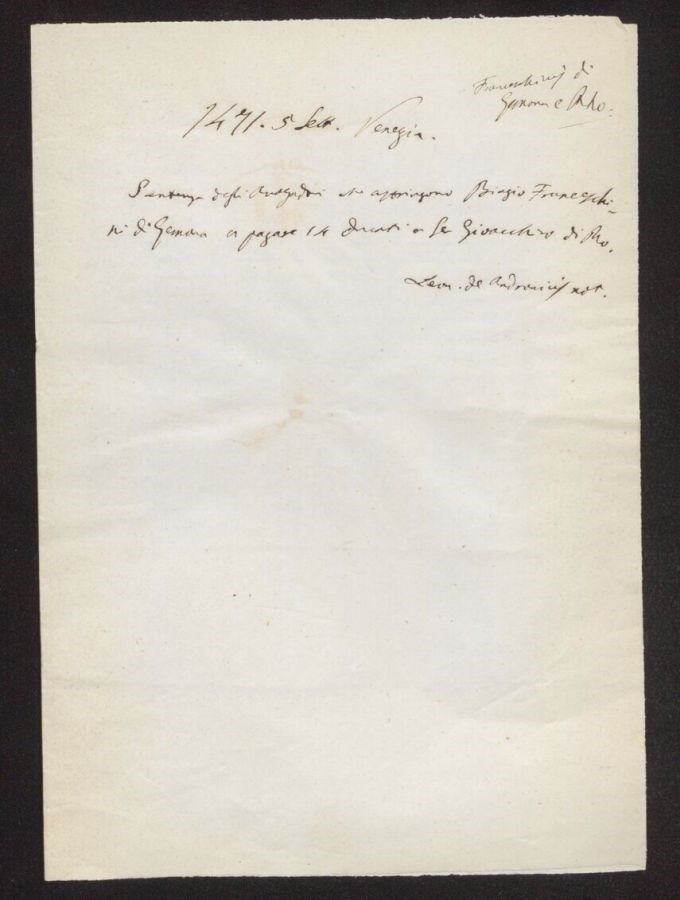 Franceschinis di
Gemona e Rho.
1471. 5 Sett. Venezia.
Sentenza degli Avogadori che astringono Biagio Franceschi-
ni di Gemona a pagare 14 ducati a Ser Gioacchino di Rho.
Leon. de Andronicis not.